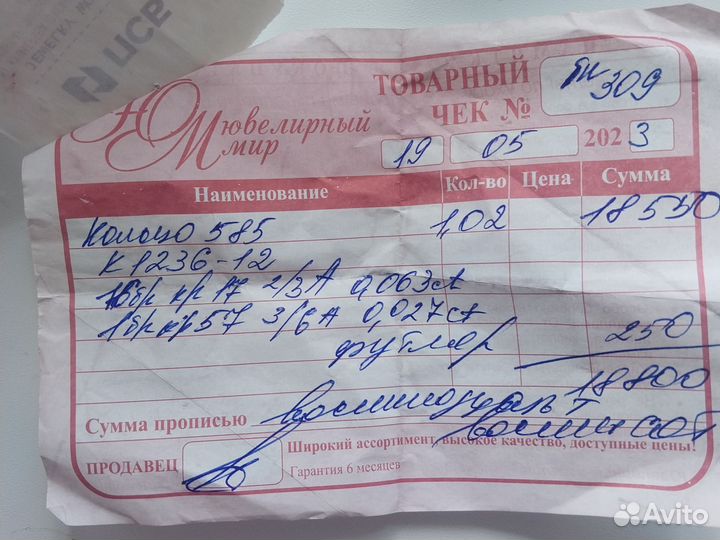 ПСБ
ТОВАРНЫЙ
ЧЕК № 309
Ювелирный
мир
19 05 2023
Наименование Кол-во Цена Сумма
Кольцо 585 1,02 18550
К1236-12
бр кр 17 2/3А 0,063ct
1бр кр 57 3/6А 0,027ct
футляр 250
18800
Сумма прописью восемнадцать т
восемьсот
ПРОДАВЕЦ
Широкий ассортимент, высокое качество, доступные цены!
Гарантия 6 месяцев
Avito